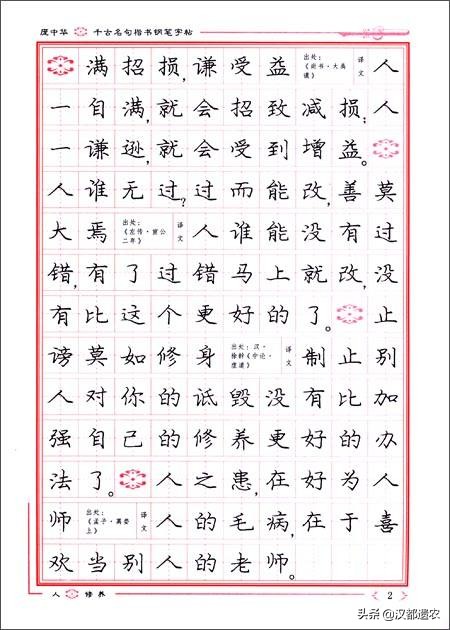 庞中华 千古名句楷书钢笔字帖
满招损,谦受益 出处:《尚书·大禹谟》 译文 人
一自满,就会招致减损;人
一谦逊,就会受到增益。
人谁无过?过而能改,善莫
大焉 出处:《左传·宣公二年》 译文 人谁能没有过
错,有了过错马上就改,没
有比这个更好的了。 止
谤莫如修身 出处:汉·徐幹《中论·虚道》 译文 制止别
人对你的诋毁没有比加
强自己的修养更好的办
法了。 人之患,在好为人
师 出处:《孟子·离娄上》 译文 人的毛病,在于喜
欢当别人的老师。
人 修养 2
头条 @汉都遗农